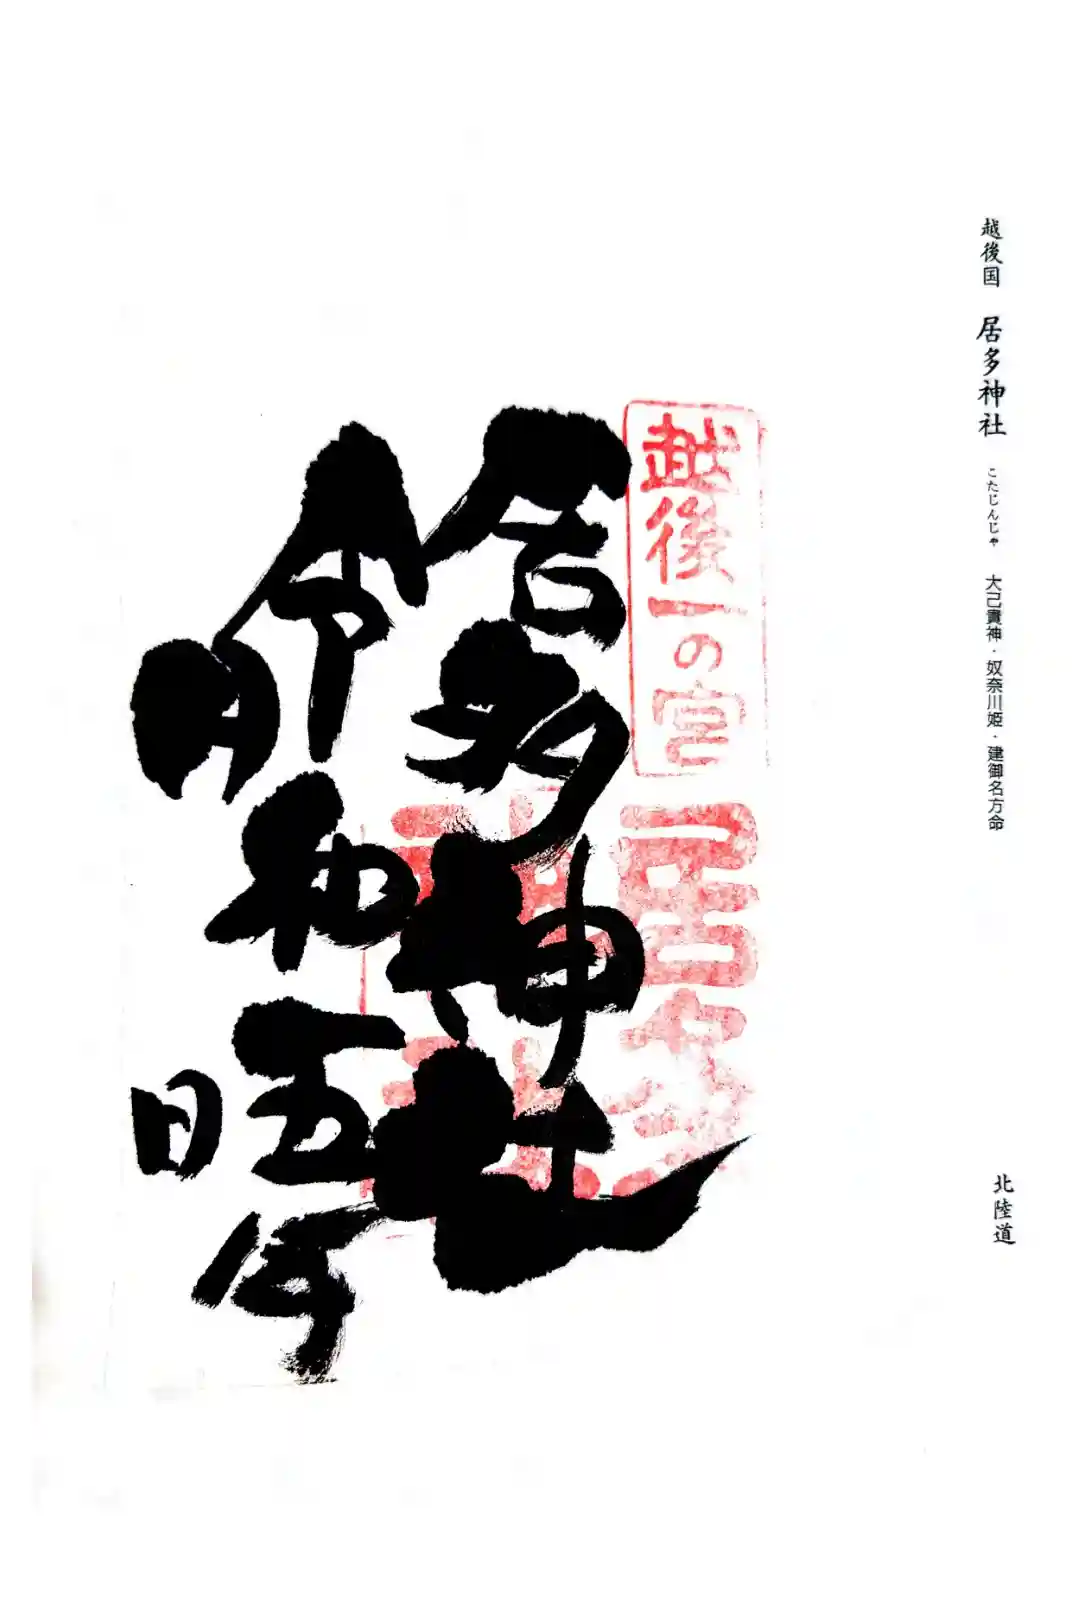 越後国 居多神社 こたじんじゃ 大己貴神・奴奈川姫・建御名方命
北陸道
越後一の宮
居多神社
居多神社
令和五年
月 日